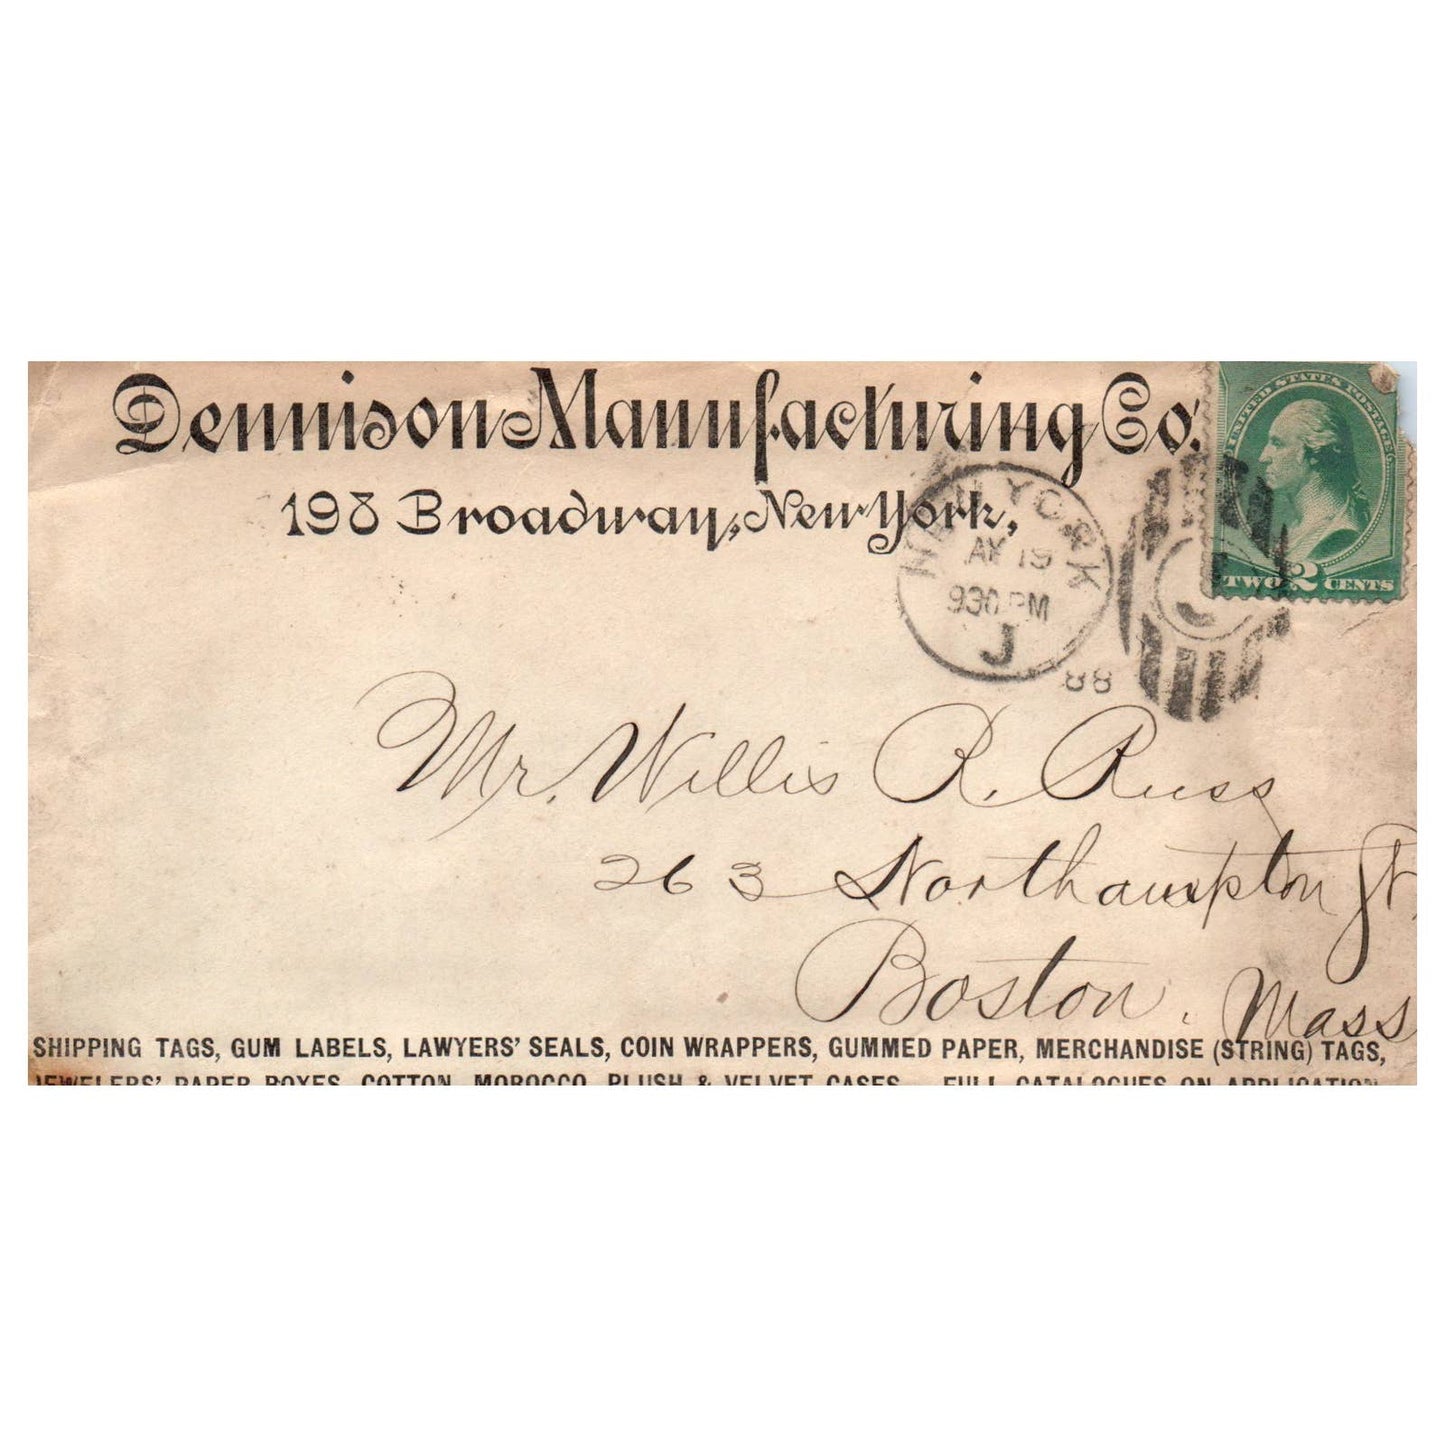 Dennison Manufacturing Co.
198 Broadway, New York,
UNITED STATES POSTAGE
TWO 2 CENTS
NEW YORK
19
930 PM
J
88
Mr. Willis R. Russ
263 Northampton St.
Boston, Mass
SHIPPING TAGS, GUM LABELS, LAWYERS' SEALS, COIN WRAPPERS, GUMMED PAPER, MERCHANDISE (STRING) TAGS,
JEWELERS' PAPER BOXES, COTTON, MOROCCO, PLUSH & VELVET CASES. FULL CATALOGUES ON APPLICATION.